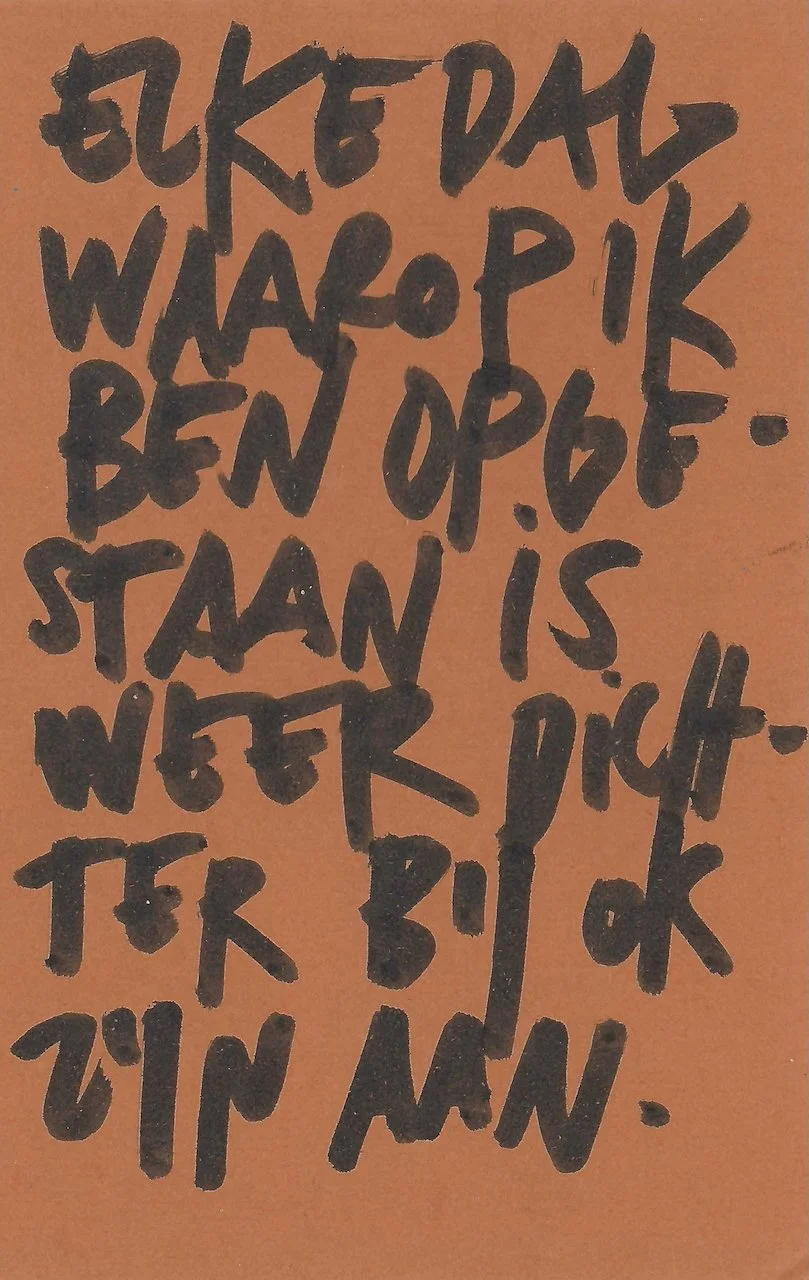 ELKE DAG
WAAROP IK
BEN OPGE-
STAAN IS
WEER DICH-
TER BIJ OK
ZIJN AAN.